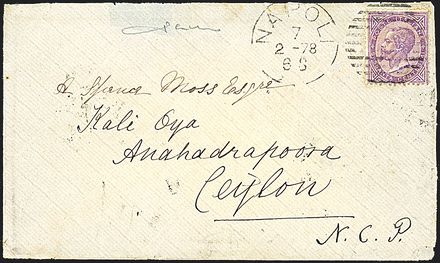 NAPOLI
7
2 - 78
6 S
A Moss Esqre
Kali Oya
Anahadrapoora
Ceylon
N. C. P.